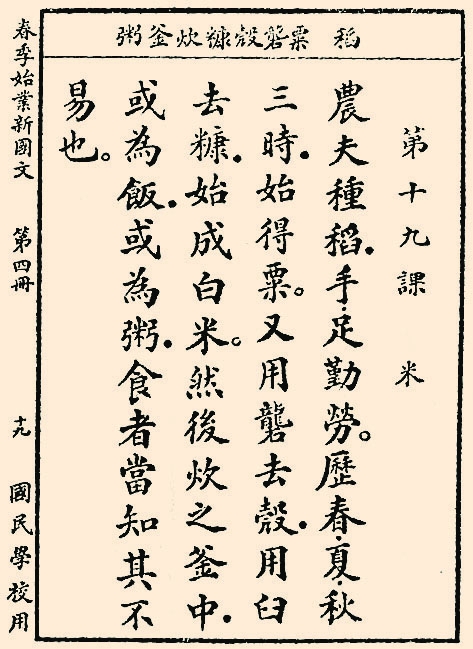 稻 粟礱殼糠炊釜粥
第十九課 米
農夫種稻．手·足勤勞。歷春·夏·秋
三時．始得粟。又用礱去殼．用臼
去糠．始成白米。然後炊之釜中．
或為飯．或為粥．食者當知其不
易也。
春季始業新國文 第四冊 十九 國民學校用